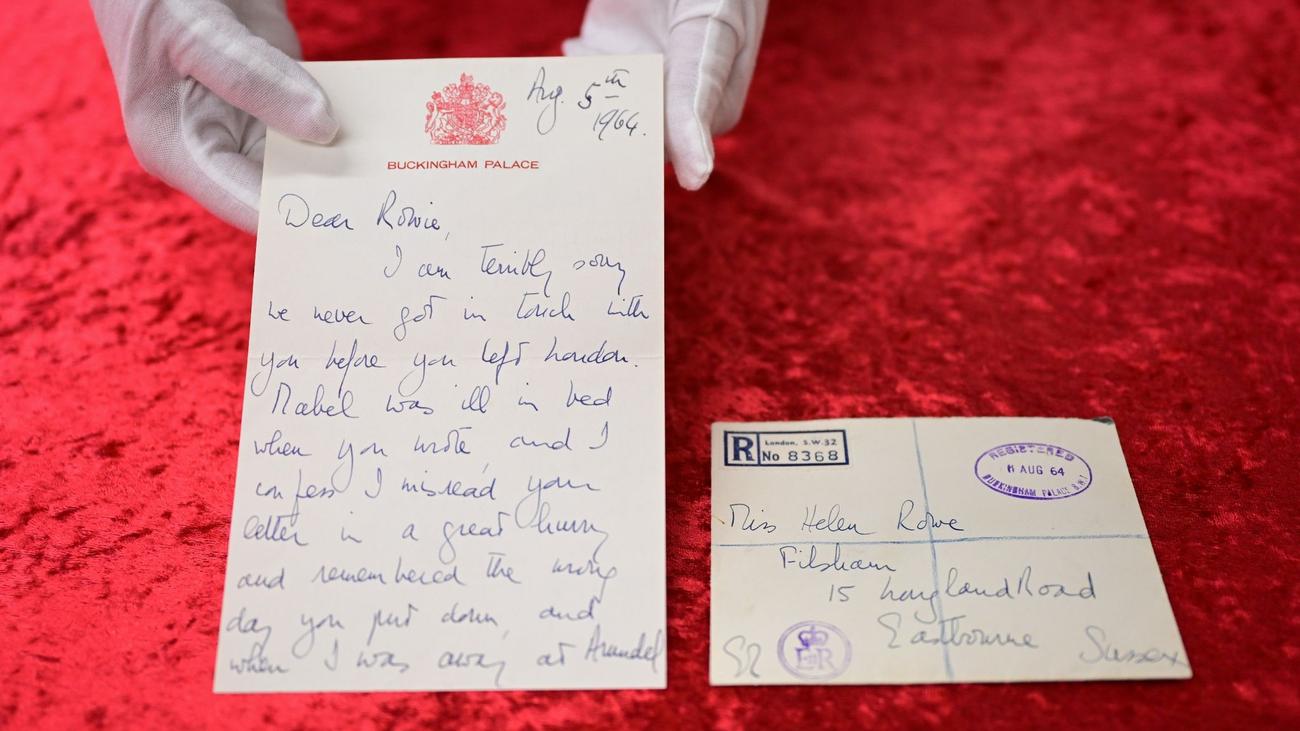 Aug. 5th
1964.
BUCKINGHAM PALACE
Dear Rowie,
I am terribly sorry
we never got in touch with
you before you left London.
Mabel was ill in bed
when you wrote, and I
confess I misread your
letter in a great hurry
and remembered the wrong
day you put down, and
when I was away at Arundel
R London, S.W.32
No 8368
REGISTERED
11 AUG 64
BUCKINGHAM PALACE S.W.1
Miss Helen Rowe
Filsham
15 Langland Road
Eastbourne Sussex
EiiR